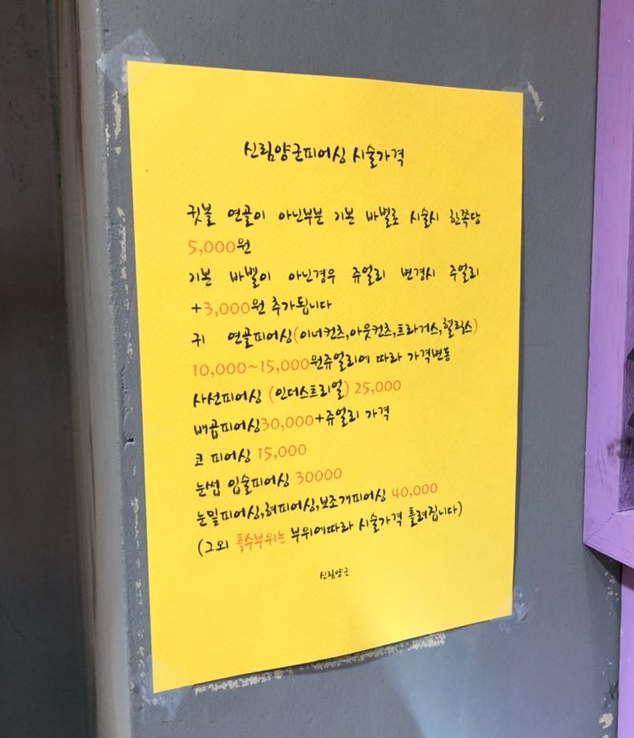 신림양군피어싱 시술가격
귓볼 연골이 아닌부분 기본 바벨로 시술시 한쪽당
5,000원
기본 바벨이 아닌경우 쥬얼리 변경시 주얼리
+3,000원 추가됩니다
귀 연골피어싱(이너컨츠,아웃컨츠,트라거스,헬릭스)
10,000~15,000원쥬얼리에 따라 가격변동
사선피어싱 (인더스트리얼) 25,000
배꼽피어싱30,000+쥬얼리 가격
코 피어싱 15,000
눈썹 입술피어싱 30000
눈밑피어싱,혀피어싱,보조개피어싱 40,000
(그외 특수부위는 부위에따라 시술가격 틀려집니다)
신림양군